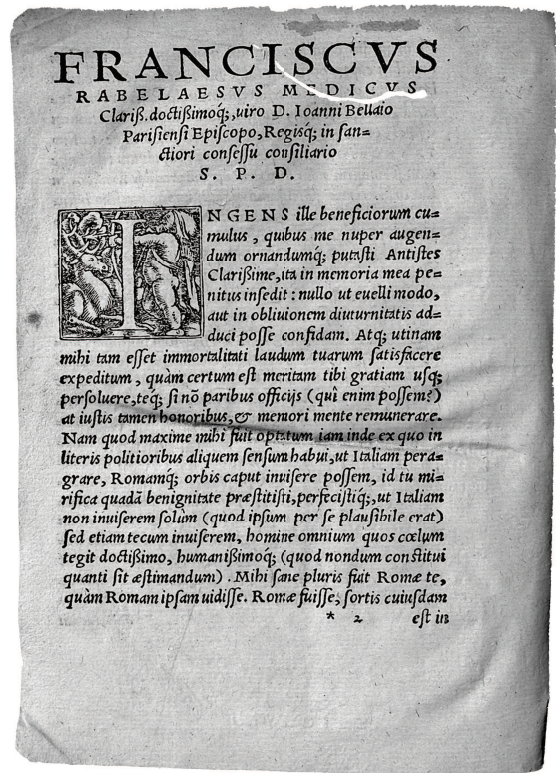 FRANCISCVS
RABELAESVS MEDICVS
Clariß. doctißimoq;, uiro D. Ioanni Bellaio
Parisiensi Episcopo, Regisq; in san=
ctiori consessu consiliario
S. P. D.
INGENS ille beneficiorum cu=
mulus, quibus me nuper augen=
dum ornandumq; putasti Antistes
Clarißime, ita in memoria mea pe=
nitus insedit: nullo ut euelli modo,
aut in obliuionem diuturnitatis ad=
duci posse confidam. Atq; utinam
mihi tam esset immortalitati laudum tuarum satisfacere
expeditum, quàm certum est meritam tibi gratiam usq;
persoluere, teq; si nō paribus officijs (qui enim possem?)
at iustis tamen honoribus, & memori mente remunerare.
Nam quod maxime mihi fuit optatum iam inde ex quo in
literis politioribus aliquem sensum habui, ut Italiam pera=
grare, Romamq; orbis caput inuisere possem, id tu mi=
rifica quadā benignitate præstitisti, perfecistiq;, ut Italiam
non inuiserem solùm (quod ipsum per se plausibile erat)
sed etiam tecum inuiserem, homine omnium quos cœlum
tegit doctißimo, humanißimoq; (quod nondum constitui
quanti sit æstimandum). Mihi sane pluris fuit Romæ te,
quàm Romam ipsam uidisse. Romæ fuisse, sortis cuiusdam
* 2 est in